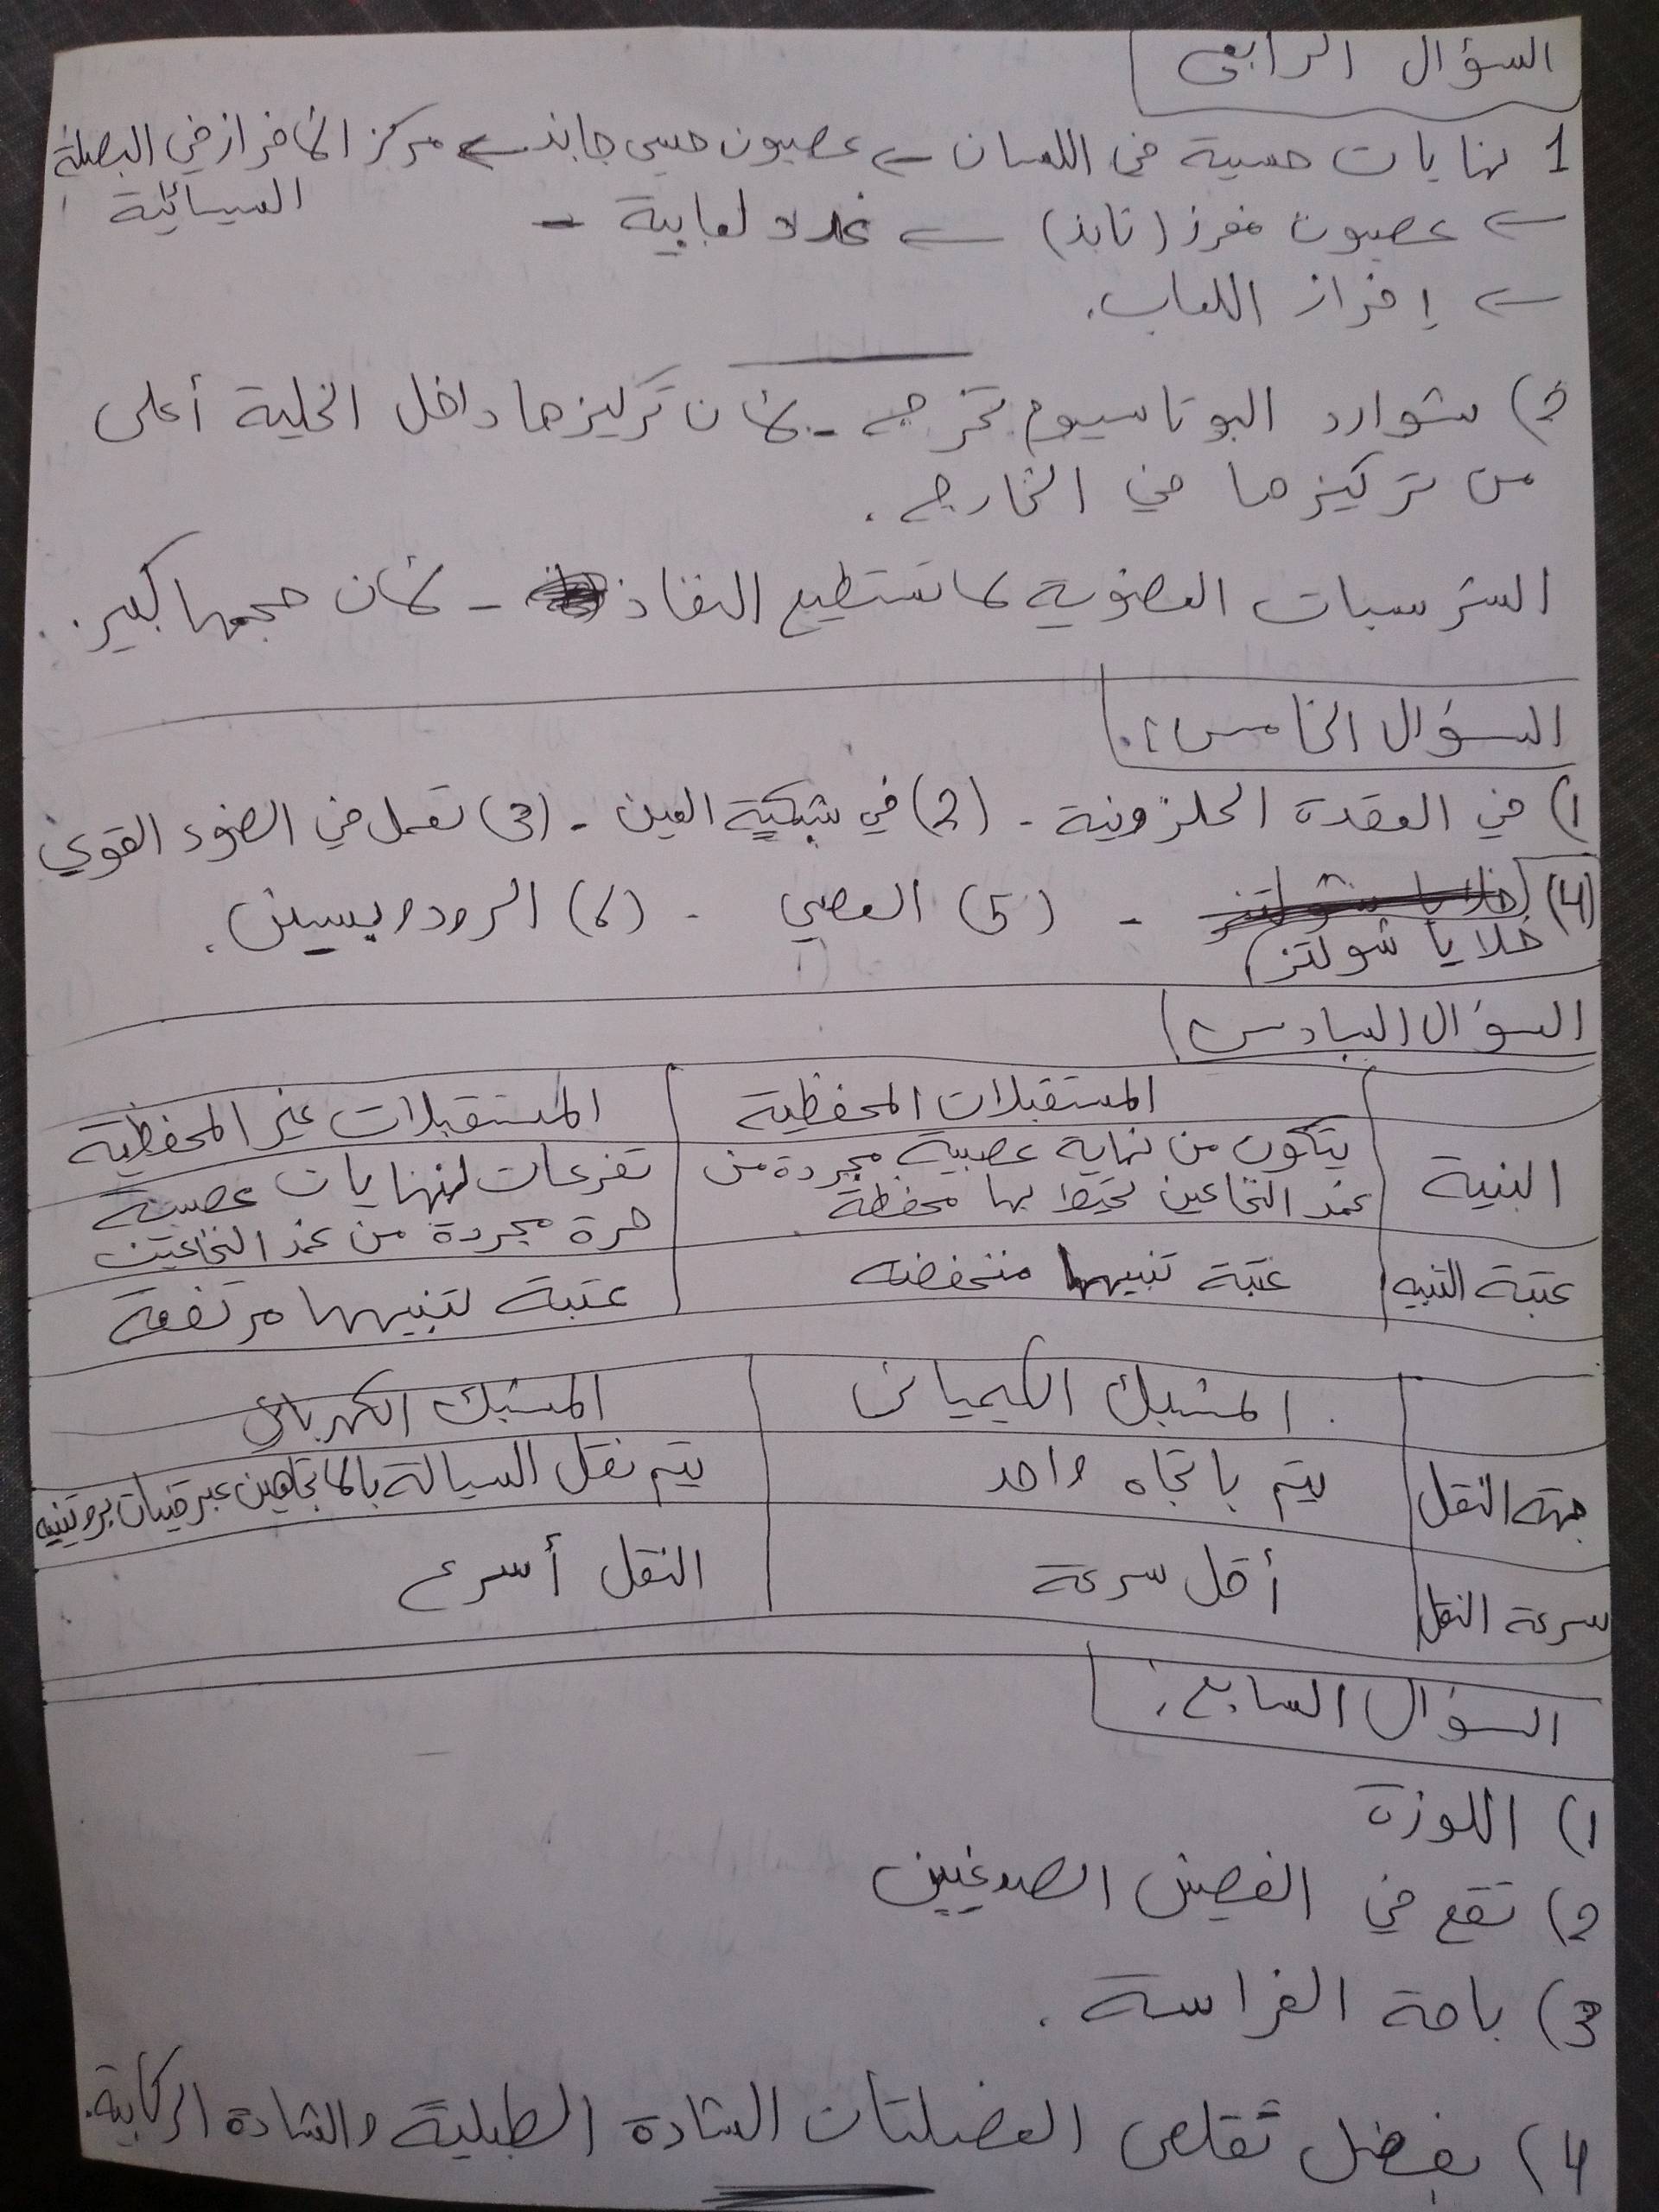 السؤال الرابع
1 نهايات حسية في اللسان ← عصبون حسي جابذ ← مركز الإفراز في البصلة السيسائية
← عصبون مفرز (نابذ) ← غدد لعابية -
← إفراز اللعاب.
2) شوارد البوتاسيوم تخرج - لأن تركيزها داخل الخلية أعلى
من تركيزها في الخارج.
الشرسبات العضوية لا تستطيع النفاذ - لأن حجمها كبير.
السؤال الخامس:
1) في العقدة الحلزونية - (2) في شبكية العين - (3) تعمل في الضوء القوي
(4) خلايا شولتز - (5) العصبي - (6) الرودوبسين.
السؤال السادس:
المستقبلات المحفظية | المستقبلات غير المحفظية
البنية | يتكون من نهاية عصبية مجردة من | تفرعات لنهايات عصبية
غمد النخاعين تحيط بها محفظة | حرة مجردة من غمد النخاعين
عتبة التنبيه | عتبة تنبيهها منخفضة | عتبة تنبيهها مرتفعة
المشبك الكيميائي | المشبك الكهربائي
جهة النقل | يتم باتجاه واحد | يتم نقل السيالة بالاتجاهين عبر قنيات بروتينية
سرعة النقل | أقل سرعة | النقل أسرع
السؤال السابع:
1) اللوزة
2) تقع في الفصين الصدغيين
3) باحة الفراسة.
4) بفضل تقلص العضلتان الشادة الطبلية والشادة الركابية.